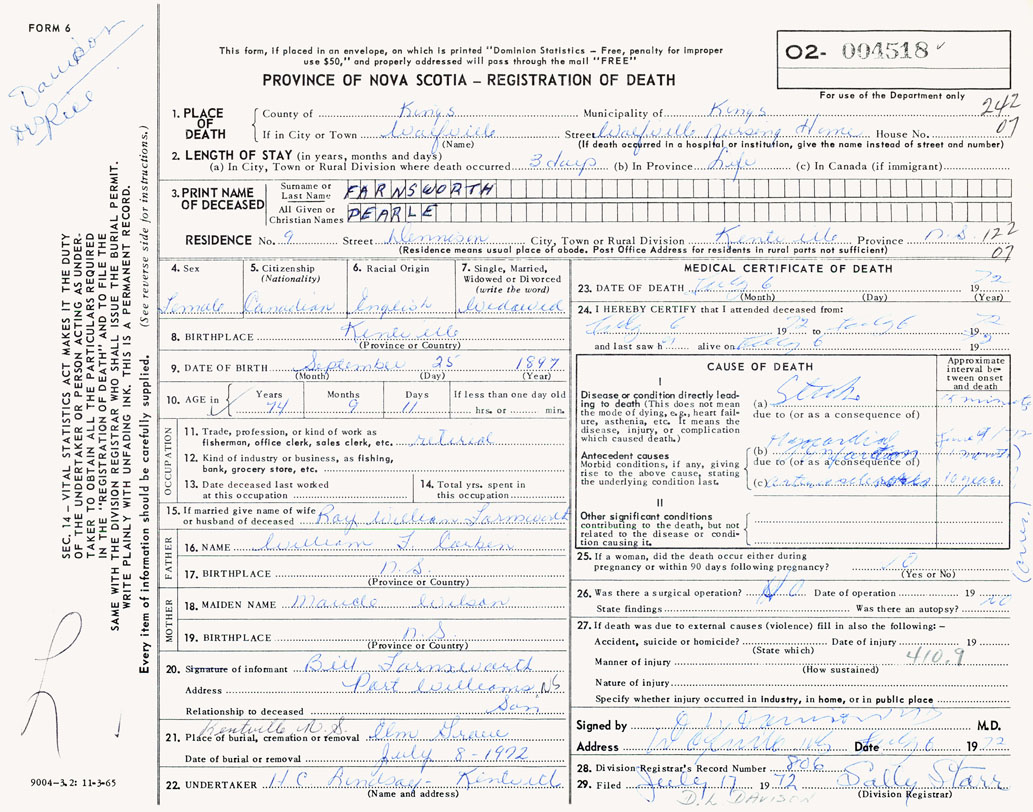 FORM 6
Davison
This form, if placed in an envelope, on which is printed "Dominion Statistics – Free, penalty for improper
use $50," and properly addressed will pass through the mail "FREE"
PROVINCE OF NOVA SCOTIA – REGISTRATION OF DEATH
02- 004518
For use of the Department only
242
07
1. PLACE OF DEATH
County of Kings Municipality of Kings
If in City or Town Wolfville Street Wolfville Nursing Home House No.
(Name) (If death occurred in a hospital or institution, give the name instead of street and number)
2. LENGTH OF STAY (in years, months and days)
(a) In City, Town or Rural Division where death occurred 3 days (b) In Province Life (c) In Canada (if immigrant)
3. PRINT NAME OF DECEASED
Surname or Last Name FARNSWORTH
All Given or Christian Names PEARLE
RESIDENCE No. 9 Street Dennison City, Town or Rural Division Kentville Province N.S. 122
(Residence means usual place of abode. Post Office Address for residents in rural parts not sufficient) 07
4. Sex Female
5. Citizenship (Nationality) Canadian
6. Racial Origin English
7. Single, Married, Widowed or Divorced (write the word) Widowed
8. BIRTHPLACE Kentville
(Province or Country)
9. DATE OF BIRTH September 25 1897
(Month) (Day) (Year)
10. AGE in Years 74 Months 9 Days 11 If less than one day old hrs. or min.
OCCUPATION
11. Trade, profession, or kind of work as
fisherman, office clerk, sales clerk, etc. retired
12. Kind of industry or business, as fishing,
bank, grocery store, etc.
13. Date deceased last worked
at this occupation
14. Total yrs. spent in
this occupation
15. If married give name of wife
or husband of deceased Roy William Farnsworth
FATHER
16. NAME William
17. BIRTHPLACE N.S.
(Province or Country)
MOTHER
18. MAIDEN NAME Maude Wilson
19. BIRTHPLACE N.S.
(Province or Country)
20. Signature of informant Bill Farnsworth
Address Port Williams, NS
Relationship to deceased Son
Kentville N.S.
21. Place of burial, cremation or removal Elm Grove
Date of burial or removal July 8 - 1972
22. UNDERTAKER H C Lindsay - Kentville
(Name and address)
MEDICAL CERTIFICATE OF DEATH
23. DATE OF DEATH July 6 1972
(Month) (Day) (Year)
24. I HEREBY CERTIFY that I attended deceased from:
July 6 1972 to July 6 1972
and last saw h alive on July 6 19
CAUSE OF DEATH
Approximate interval between onset and death
I
Disease or condition directly leading to death (This does not mean the mode of dying, e.g., heart failure, asthenia, etc. It means the disease, injury, or complication which caused death.)
(a) minute
due to (or as a consequence of)
Antecedent causes
Morbid conditions, if any, giving rise to the above cause, stating the underlying condition last.
(b) Myocardial
due to (or as a consequence of)
(c) 10 years
II
Other significant conditions
contributing to the death, but not related to the disease or condition causing it.
25. If a woman, did the death occur either during
pregnancy or within 90 days following pregnancy? no
(Yes or No)
26. Was there a surgical operation? No Date of operation 19
State findings Was there an autopsy? no
27. If death was due to external causes (violence) fill in also the following: –
Accident, suicide or homicide? Date of injury 19
(State which)
Manner of injury 410.9
(How sustained)
Nature of injury
Specify whether injury occurred in Industry, in home, or in public place
Signed by M.D.
Address Wolfville NS Date July 6 1972
28. Division Registrar's Record Number 806
29. Filed July 17 1972 Sally Starr
(Division Registrar)
D.L DAVISON
SEC. 14 – VITAL STATISTICS ACT MAKES IT THE DUTY
OF THE UNDERTAKER OR PERSON ACTING AS UNDER-
TAKER TO OBTAIN ALL THE PARTICULARS REQUIRED
IN THE "REGISTRATION OF DEATH" AND TO FILE THE
SAME WITH THE DIVISION REGISTRAR WHO SHALL ISSUE THE BURIAL PERMIT.
WRITE PLAINLY WITH UNFADING INK. THIS IS A PERMANENT RECORD.
Every item of information should be carefully supplied. (See reverse side for instructions.)
9004-3.2: 11-3-65